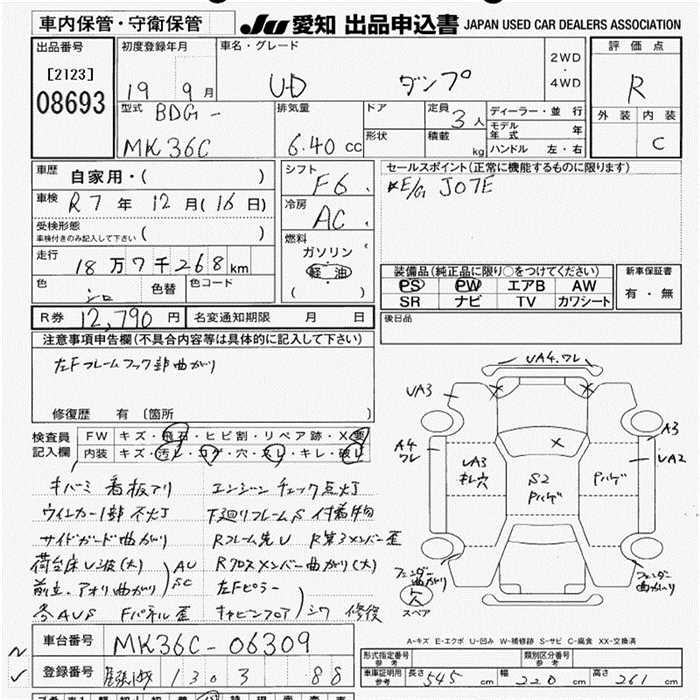 車内保管・守衛保管
JU 愛知 出品申込書 JAPAN USED CAR DEALERS ASSOCIATION
出品番号
[2123]
08693
初度登録年月
19 9月
車名・グレード
UD ダンプ
2WD
・
4WD
評価点
R
外装 内装
C
型式 BDG-
MK36C
排気量
6.40 cc
ドア
形状
定員 3人
積載 kg
ディーラー・並行
モデル年式 年
ハンドル 左・右
車歴 自家用・( )
車検 R7年 12月(16日)
受検形態
車検付きのみ記入して下さい ( )
走行 18万7千268km
色 シロ 色替 色コード
シフト F6
冷房 AC
燃料
ガソリン
軽油
( )
セールスポイント(正常に機能するものに限ります)
*E/G J07E
装備品(純正品に限り○をつけてください)
PS PW エアB AW
SR ナビ TV カワシート
新車保証書
有・無
R券 12,790円 名変通知期限 月 日
後日品
注意事項申告欄(不具合内容等は具体的に記入して下さい)
左Fフレームフック部曲がり
修復歴 有 〔箇所 〕
検査員
記入欄
FW キズ・飛石・ヒビ割・リペア跡・X要
内装 キズ・汚レ・コゲ・穴・スレ・キレ・破レ
キバミ 看板アリ エンジンチェック点灯
ウインカー1部不灯 下廻りフレームS 付着物
サイドガード曲がり Rフレーム先U R第3メンバー歪
荷台床U波(大) AU Rクロスメンバー曲がり(大)
前立、アオリ曲がり SC 左Fピラー
各AUS Fパネル歪 キャビンフロア シワ 修復
UA4.ワレ
UA3
A4
ワレ
UA3
キレ穴
S2
Pハゲ
Pハゲ
A3
UA2
フェンダー
曲がり
穴
スペア
フェンダー
曲がり
車台番号 MK36C-06309
登録番号 130 88
A-キズ E-エクボ U-凹み W-補修跡 S-サビ C-腐食 XX-交換済
形式指定番号
参考
類別区分番号
参考
車庫証明用
参考
長さ 545 cm 幅 220 cm 高さ 261 cm